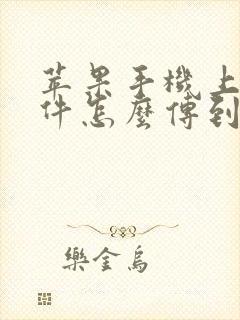 苹果手機上
件怎麼傳到
樂金烏